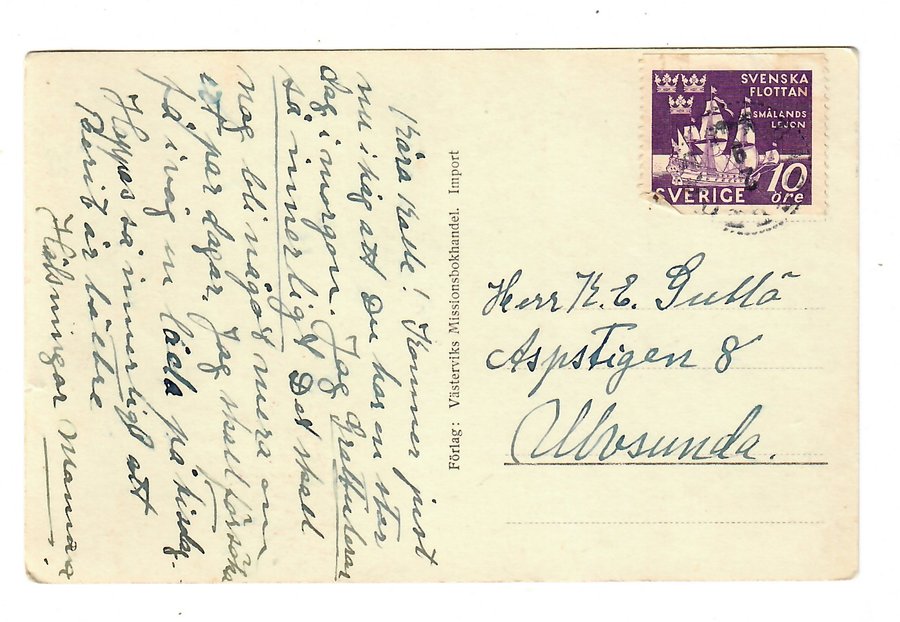 Kära Kalle! Kommer just
nu ihåg att Du har en stor
dag i morgon. Jag Gratulerar
så innerligt. Det skall
nog bli något mera om
ett par dagar. Jag skall försöka
få i väg en låda på tisdag.
Hoppas så innerligt att
Berit är bättre
Hälsningar Mamma.
Förlag: Västerviks Missionsbokhandel. Import
SVENSKA
FLOTTAN
SMÅLANDS
LEJON
SVERIGE 10
öre
Herr K. E. Gullå
Aspstigen 8
Ulvsunda.